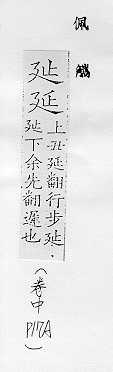 佩觿
㢟延
上丑延翻行步㢟㢟
下余先翻遲也
(卷中
P17A)